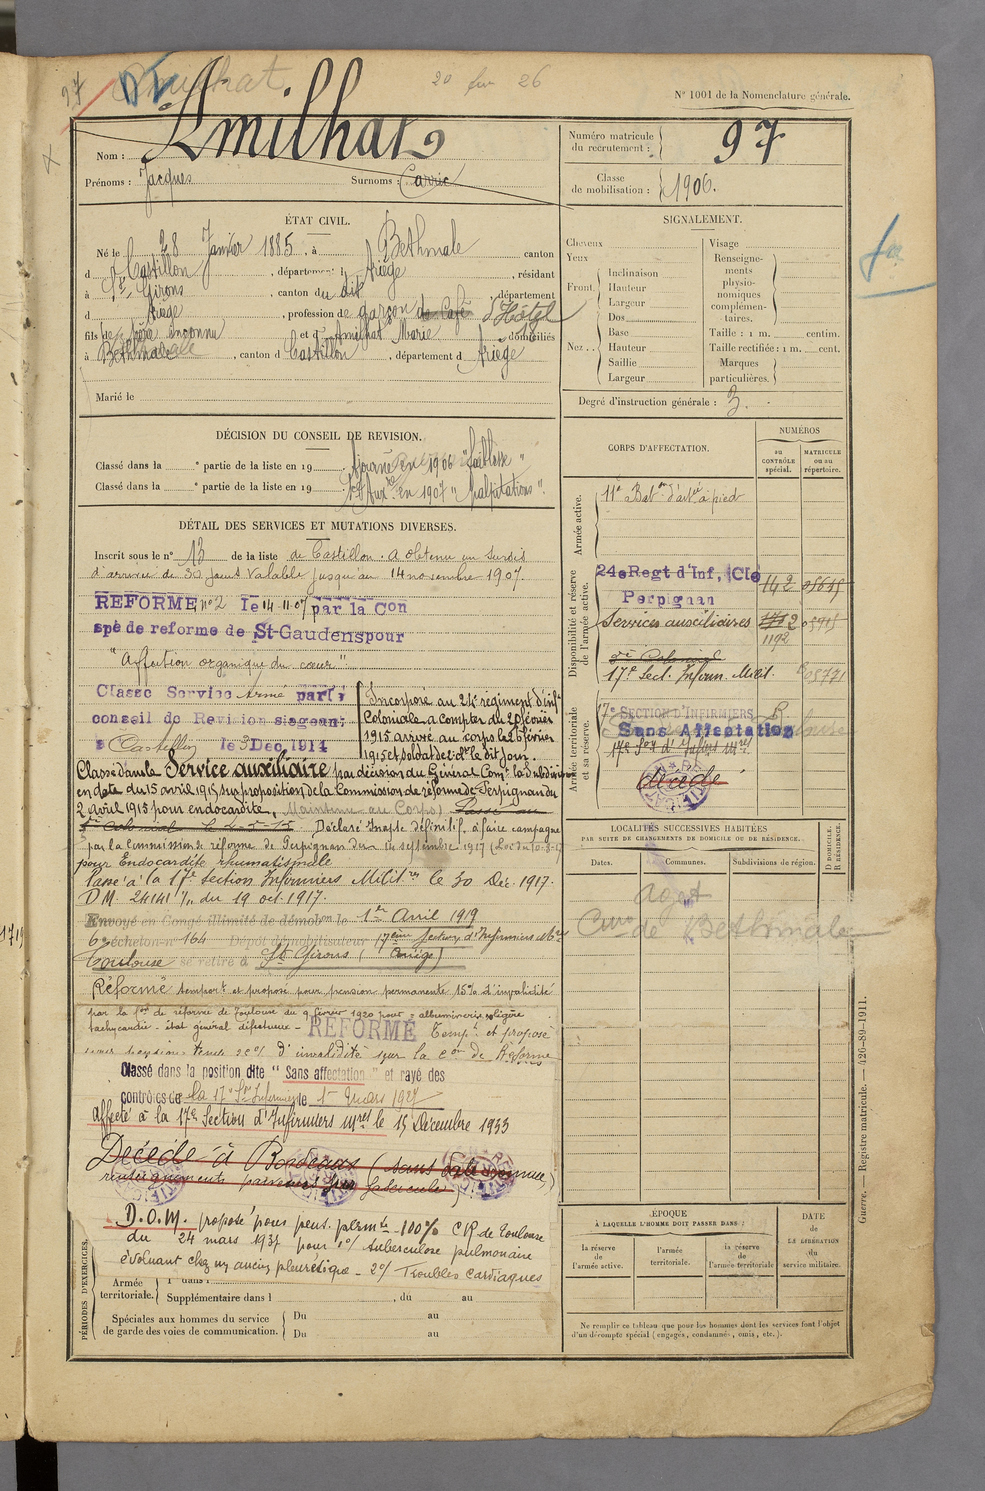 97
Amilhat
20 fev 26
N° 1001 de la Nomenclature générale.
Nom : Amilhat
Prénoms : Jacques Surnoms :
Numéro matricule du recrutement : 97
Classe de mobilisation : 1906.
ÉTAT CIVIL.
Né le 28 Janvier 1885, à Bethmale canton
d Castillon, département Ariège, résidant
à St Girons, canton du dit, département
d Ariège, profession de garçon de Café d'Hôtel
fils de père inconnu et d'Amilhat Marie domiciliés
à Bethmale, canton d Castillon, département d Ariège
Marié le
SIGNALEMENT.
Cheveux
Yeux
Front. Inclinaison
Hauteur
Largeur
Nez. Dos
Base
Hauteur
Saillie
Largeur
Visage
Renseignements physionomiques complémentaires.
Taille : 1 m. centim.
Taille rectifiée : 1 m. cent.
Marques particulières.
Degré d'instruction générale : 3.
DÉCISION DU CONSEIL DE REVISION.
Classé dans la e partie de la liste en 19 Ajourné en 1906 "faiblesse"
Classé dans la e partie de la liste en 19 en 1907 "Palpitations".
DÉTAIL DES SERVICES ET MUTATIONS DIVERSES.
Inscrit sous le n° 13 de la liste de Castillon. a obtenu un sursis
d'arrivée de 30 jours valable jusqu'au 14 novembre 1907.
REFORME n° 2 le 14.11.07 par la Con
spé de reforme de St-Gaudens pour
"Affection organique du cœur"
Classé Service Armé par le
conseil de Revision siegeant
à Castillon le 3 Dec. 1914
Incorporé au 24e régiment d'inf.
Coloniale a compter du 20 février
1915 arrivé au corps le 26 février
1915 et soldat de 2e cl. le dit jour.
Classé dans le Service auxiliaire par décision du Général Comt la Subdivision
en date du 15 avril 1915, sur proposition de la Commission de réforme de Perpignan du
2 Avril 1915 pour endocardite. Maintenu au Corps. Passé au
Colonial Déclaré Inapte définitif, à faire campagne
par la Commission de réforme de Perpignan du 14 septembre 1917
pour Endocardite rhumatismale
Passé à la 17e Section Infirmiers Militres le 30 Déc. 1917.
D.M. 24141 1/7 du 19 oct. 1917.
Envoyé en Congé illimité de démobon le 1er Avril 1919
6e échelon n° 164 Dépôt démobilisateur 17ème Section d'Infirmiers
Toulouse se retire à St Girons (Ariège)
Réformé temport et proposé pour pension permanente 15% d'invalidité
par la Con de réforme de Toulouse du 9 février 1920 pour : albuminurie
tachycardie - état général défectueux - REFORMÉ Tempt et proposé
d'invalidité par la Con de Réforme
Classé dans la position dite "Sans affectation" et rayé des
contrôles de la 17e Son Infirmiers le 1er mars 1927
Affecté à la 17e Section d'Infirmiers mres le 15 Décembre 1933
Décédé à Bordeaux (sans date connue,
renseignements parvenus par fascicule)
D.O.M. proposé pour pens. permte 100% CR de Toulouse
du 24 mars 1937 pour 1°/ tuberculose pulmonaire
évoluant chez un ancien pleurétique - 2°/ Troubles cardiaques
CORPS D'AFFECTATION.
NUMÉROS
au CONTRÔLE spécial.
MATRICULE ou au répertoire.
Armée active.
11e Baton d'artie à pied
Disponibilité et réserve de l'armée active.
24e Regt d'Inf, Cle
Perpignan
142
Services auxiliaires
1192
17e Sect. Infirm. Milit.
Armée territoriale et sa réserve.
17e SECTION D'INFIRMIERS
Sans Affectation
décédé
LOCALITÉS SUCCESSIVES HABITÉES
PAR SUITE DE CHANGEMENTS DE DOMICILE OU DE RÉSIDENCE.
D DOMICILE. R RÉSIDENCE.
Dates.
Communes.
Subdivisions de région.
de Bethmale
ÉPOQUE
À LAQUELLE L'HOMME DOIT PASSER DANS :
la réserve de l'armée active.
l'armée territoriale.
la réserve de l'armée territoriale
DATE DE LA LIBÉRATION du service militaire.
PÉRIODES D'EXERCICES.
Armée territoriale.
1re dans l
Supplémentaire dans l , du au
Spéciales aux hommes du service de garde des voies de communication.
Du au
Du au
Ne remplir ce tableau que pour les hommes dont les services font l'objet
d'un décompte spécial (engagés, condamnés, omis, etc.).
Guerre. — Registre matricule. — 426-89-1911.